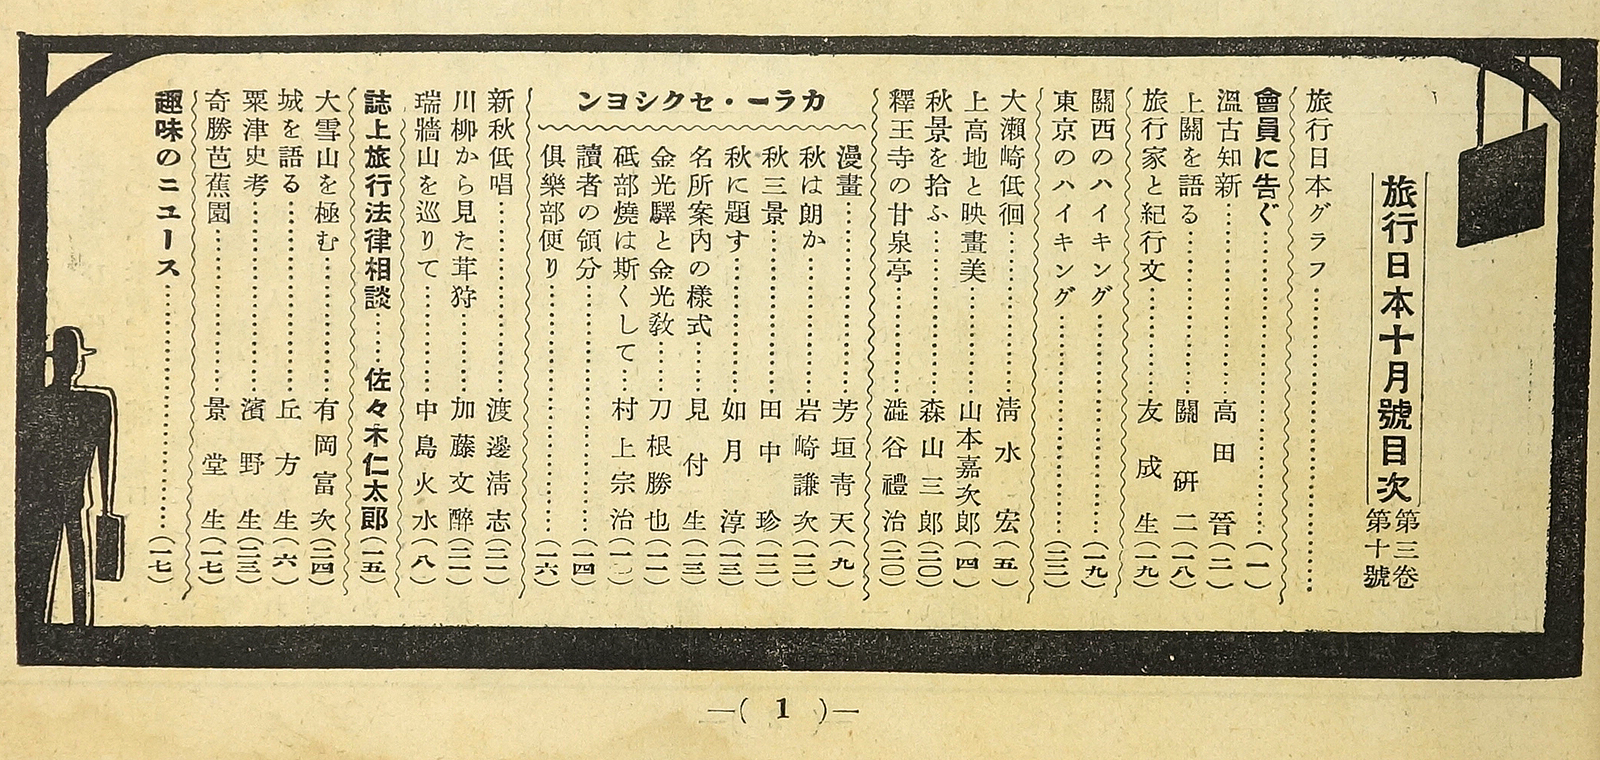 旅行日本十月號目次
第三卷
第十號
旅行日本グラフ…………
會員に告ぐ…………（一）
溫古知新…………高田晉（二）
上關を語る…………關研二（一八）
旅行家と紀行文…………友成生（一九）
關西のハイキング…………（一九）
東京のハイキング…………（二二）
大瀨崎低徊…………淸水宏（五）
上高地と映畫美…………山本嘉次郎（四）
秋景を拾ふ…………森山三郎（二〇）
釋王寺の甘泉亭…………澁谷禮治（二〇）
カラー・セクシヨン
漫畫…………芳垣靑天（九）
秋は朗か…………岩崎謙次（一二）
秋三景…………田中珍（一二）
秋に題す…………如月淳（一三）
名所案內の樣式…見付生（一三）
金光驛と金光敎…刀根勝也（一一）
砥部燒は斯くして…村上宗治
讀者の領分…………（一四）
俱樂部便り…………（一六）
新秋低唱…………渡邊淸志（二一）
川柳から見た茸狩…………加藤文醉（二一）
瑞牆山を巡りて…………中島火水（八）
誌上旅行法律相談……佐々木仁太郎（一五）
大雪山を極む…………有岡富次（二四）
城を語る…………丘方生（六）
粟津史考…………濱野生（二三）
奇勝芭蕉園…………景堂生（一七）
趣味のニュース…………（一七）
―( 1 )―